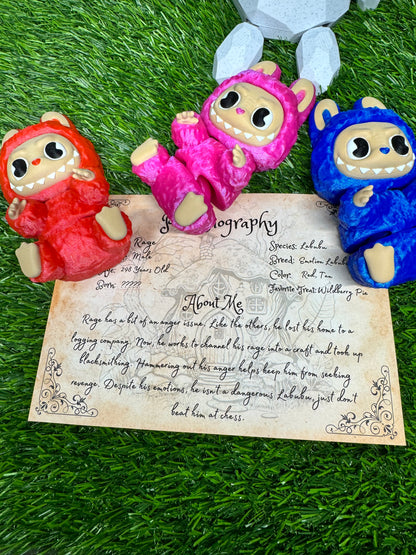 ography
Rage
Species: Labubu
Male
Breed: Sunlien Labubu
298 Years Old
Color: Red, Tan
Born: ?????
Favorite Treat: Wildberry Pie
About Me
Rage has a bit of an anger issue. Like the others, he lost his home to a
logging company. Now, he works to channel his rage into a craft and took up
blacksmithing. Hammering out his anger helps keep him from seeking
revenge. Despite his emotions, he isn't a dangerous Labubu, just don't
beat him at chess.